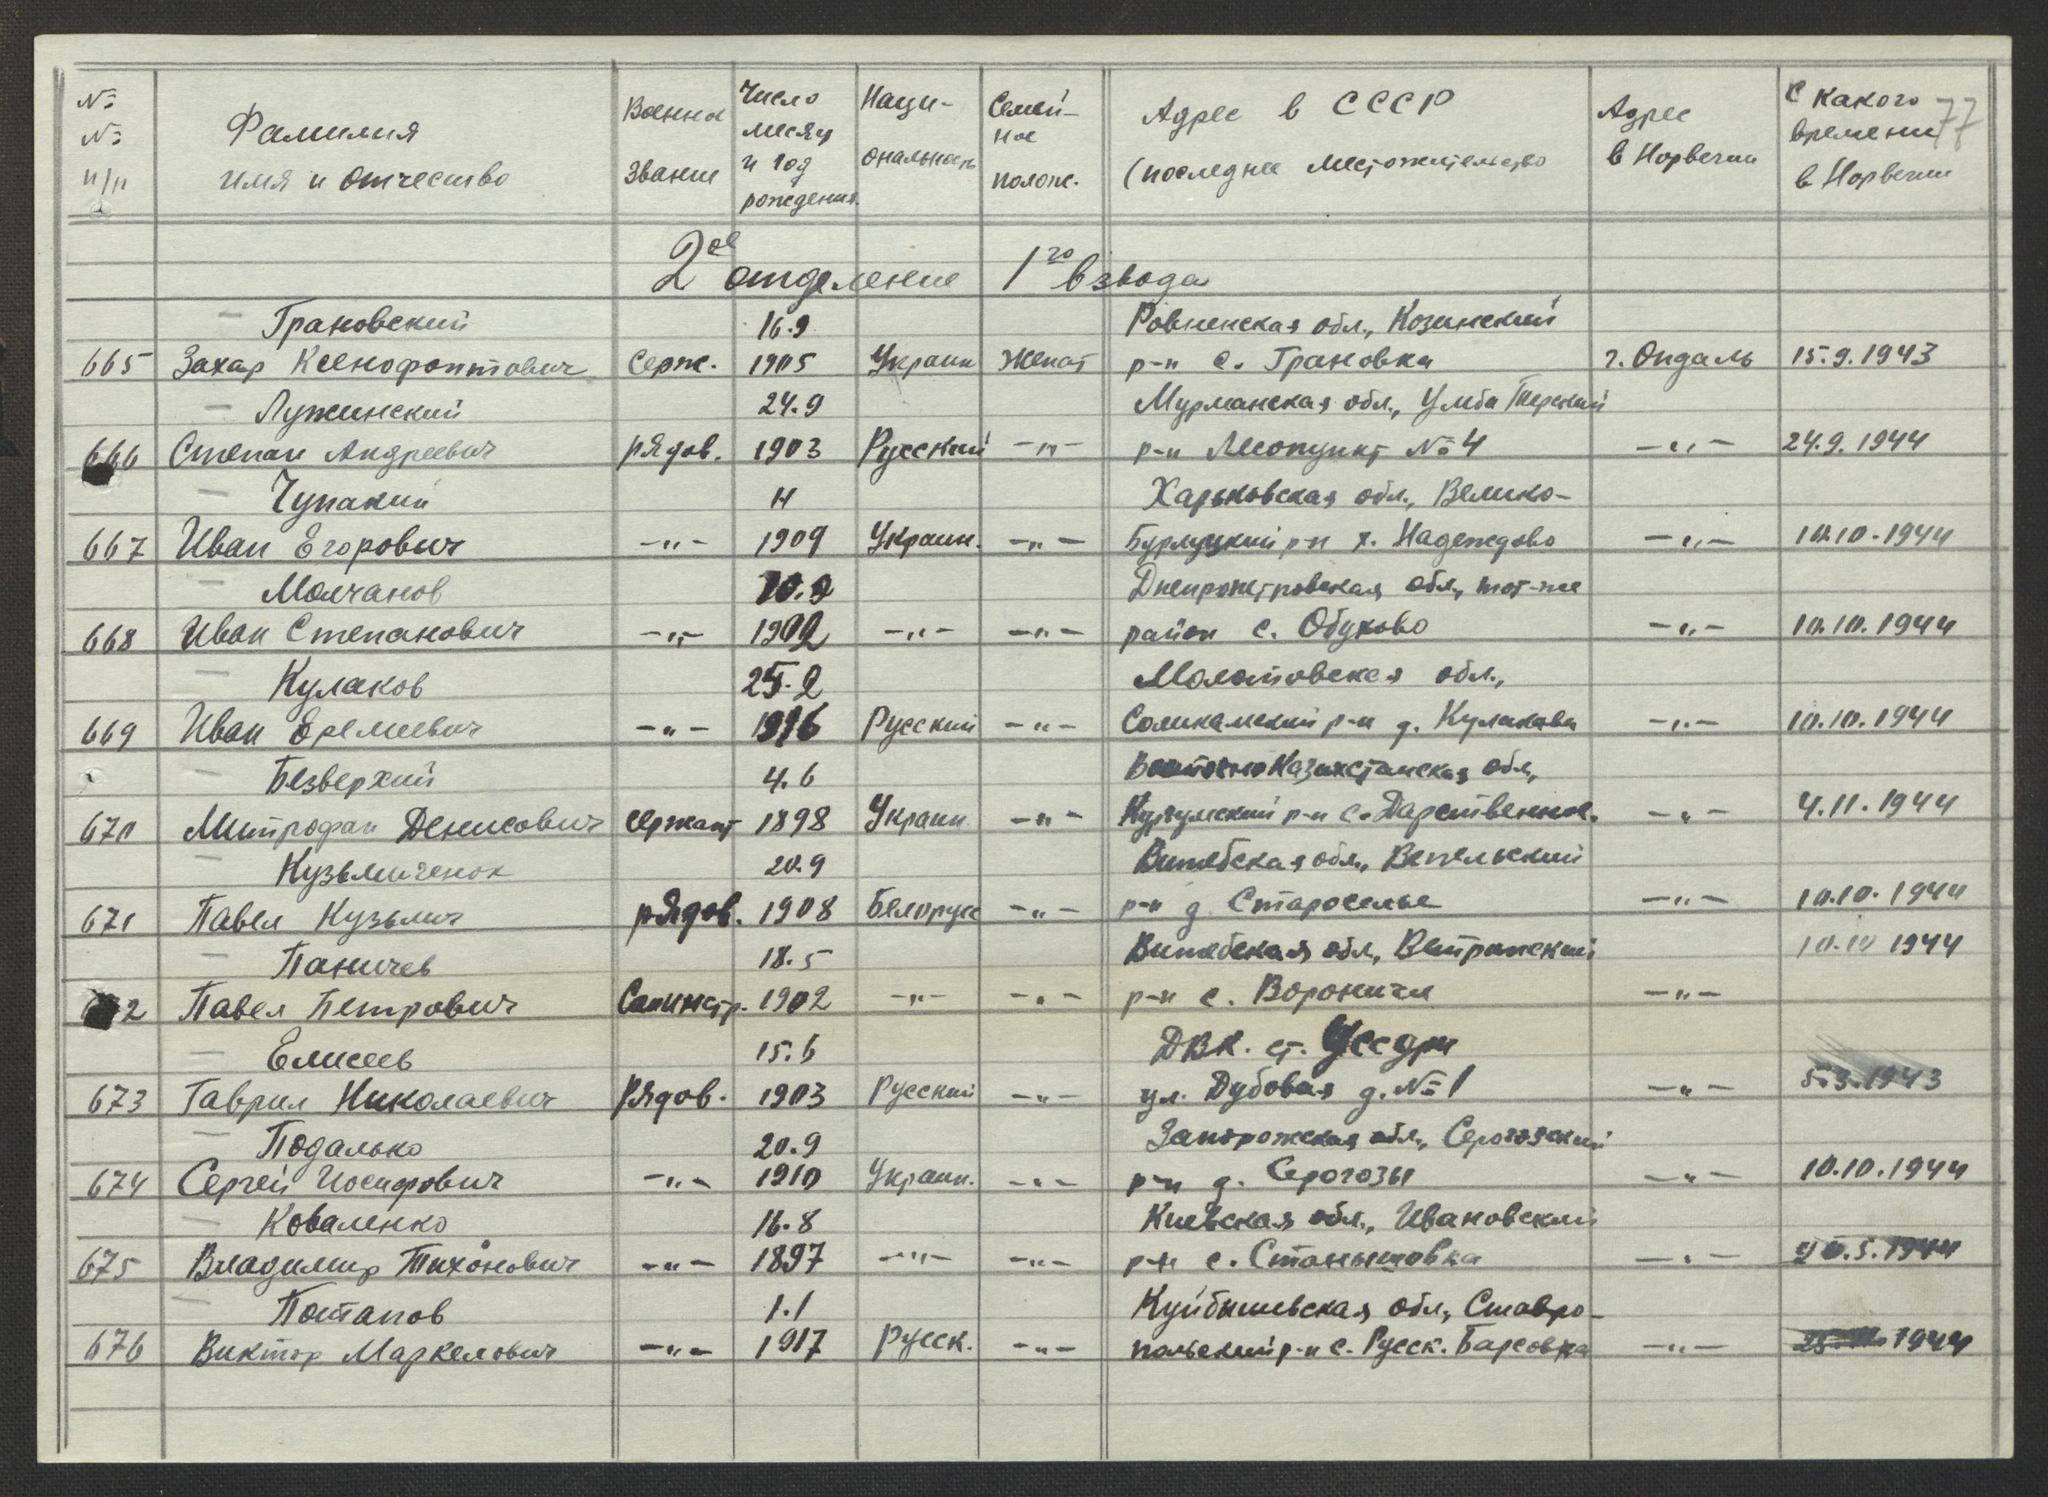 № № п/п | Фамилия имя и отчество | Военное звание | Число месяц и год рождения. | Национальность | Семейное полож. | Адрес в СССР (последнее местожительство | Адрес в Норвегии | С какого времени в Норвегии
77
2ое отделение 1го взвода
Грановский | 16.9 | Ровненская обл., Козинский
665 Захар Ксенофонтович | Серж. | 1905 | Украин | Женат | р-н с. Грановка | г. Опдаль | 15.9.1943
Лужинский | 24.9 | Мурманская обл., Умба Терский
666 Степан Андреевич | рядов. | 1903 | Русский | -"- | р-н Леопункт №4 | -"- | 24.9.1944
Чупакий | 11 | Харьковская обл., Велико-
667 Иван Егорович | -"- | 1909 | Украин. | -"- | Бурлуцкий р-н х. Надеждово | -"- | 10.10.1944
Молчанов | Днепропетровская обл., тот-же
668 Иван Степанович | -"- | 1902 | -"- | -"- | район с. Обухово | -"- | 10.10.1944
Кулаков | Молотовская обл.,
669 Иван Еремеевич | -"- | 1916 | Русский | -"- | Соликамский р-н д. Кулакова | -"- | 10.10.1944
Безверхий | 4.6 | Восточно Казахстанская обл,
670 Митрофан Денисович | сержант | 1898 | Украин. | -"- | р-н с. Дарственное. | -"- | 4.11.1944
Кузьмиченок | 20.9 | Витебская обл., Ветельский
671 Павел Кузьмич | рядов. | 1908 | Белорусс | -"- | р-н д. Староселье | -"- | 10.10.1944
Паничев | 18.5 | Витебская обл., Ветринский | 10.10 1944
672 Павел Петрович | Санинстр. | 1902 | -"- | -"- | р-н с. Вороничи | -"-
Елисеев | 15.6 | ДВК. ст. Уссури
673 Гаврил Николаевич | Рядов. | 1903 | Русский | -"- | ул. Дубовая д. №1 | -"- | 5.3.1943
Подалько | 20.9 | Запорожская обл., Серогозский
674 Сергей Иосифович | -"- | 1910 | Украин. | -"- | р-н д. Серогозы | -"- | 10.10.1944
Коваленко | 16.8 | Киевская обл., Ивановский
675 Владимир Тихонович | -"- | 1897 | -"- | -"- | р-н с. Станишовка | -"- | 5.1944
Потапов | 1.1 | Куйбышевская обл., Ставро-
676 Виктор Маркелович | -"- | 1917 | Русск. | -"- | польский р-н с. Русск. Барсовка | -"- | 1944